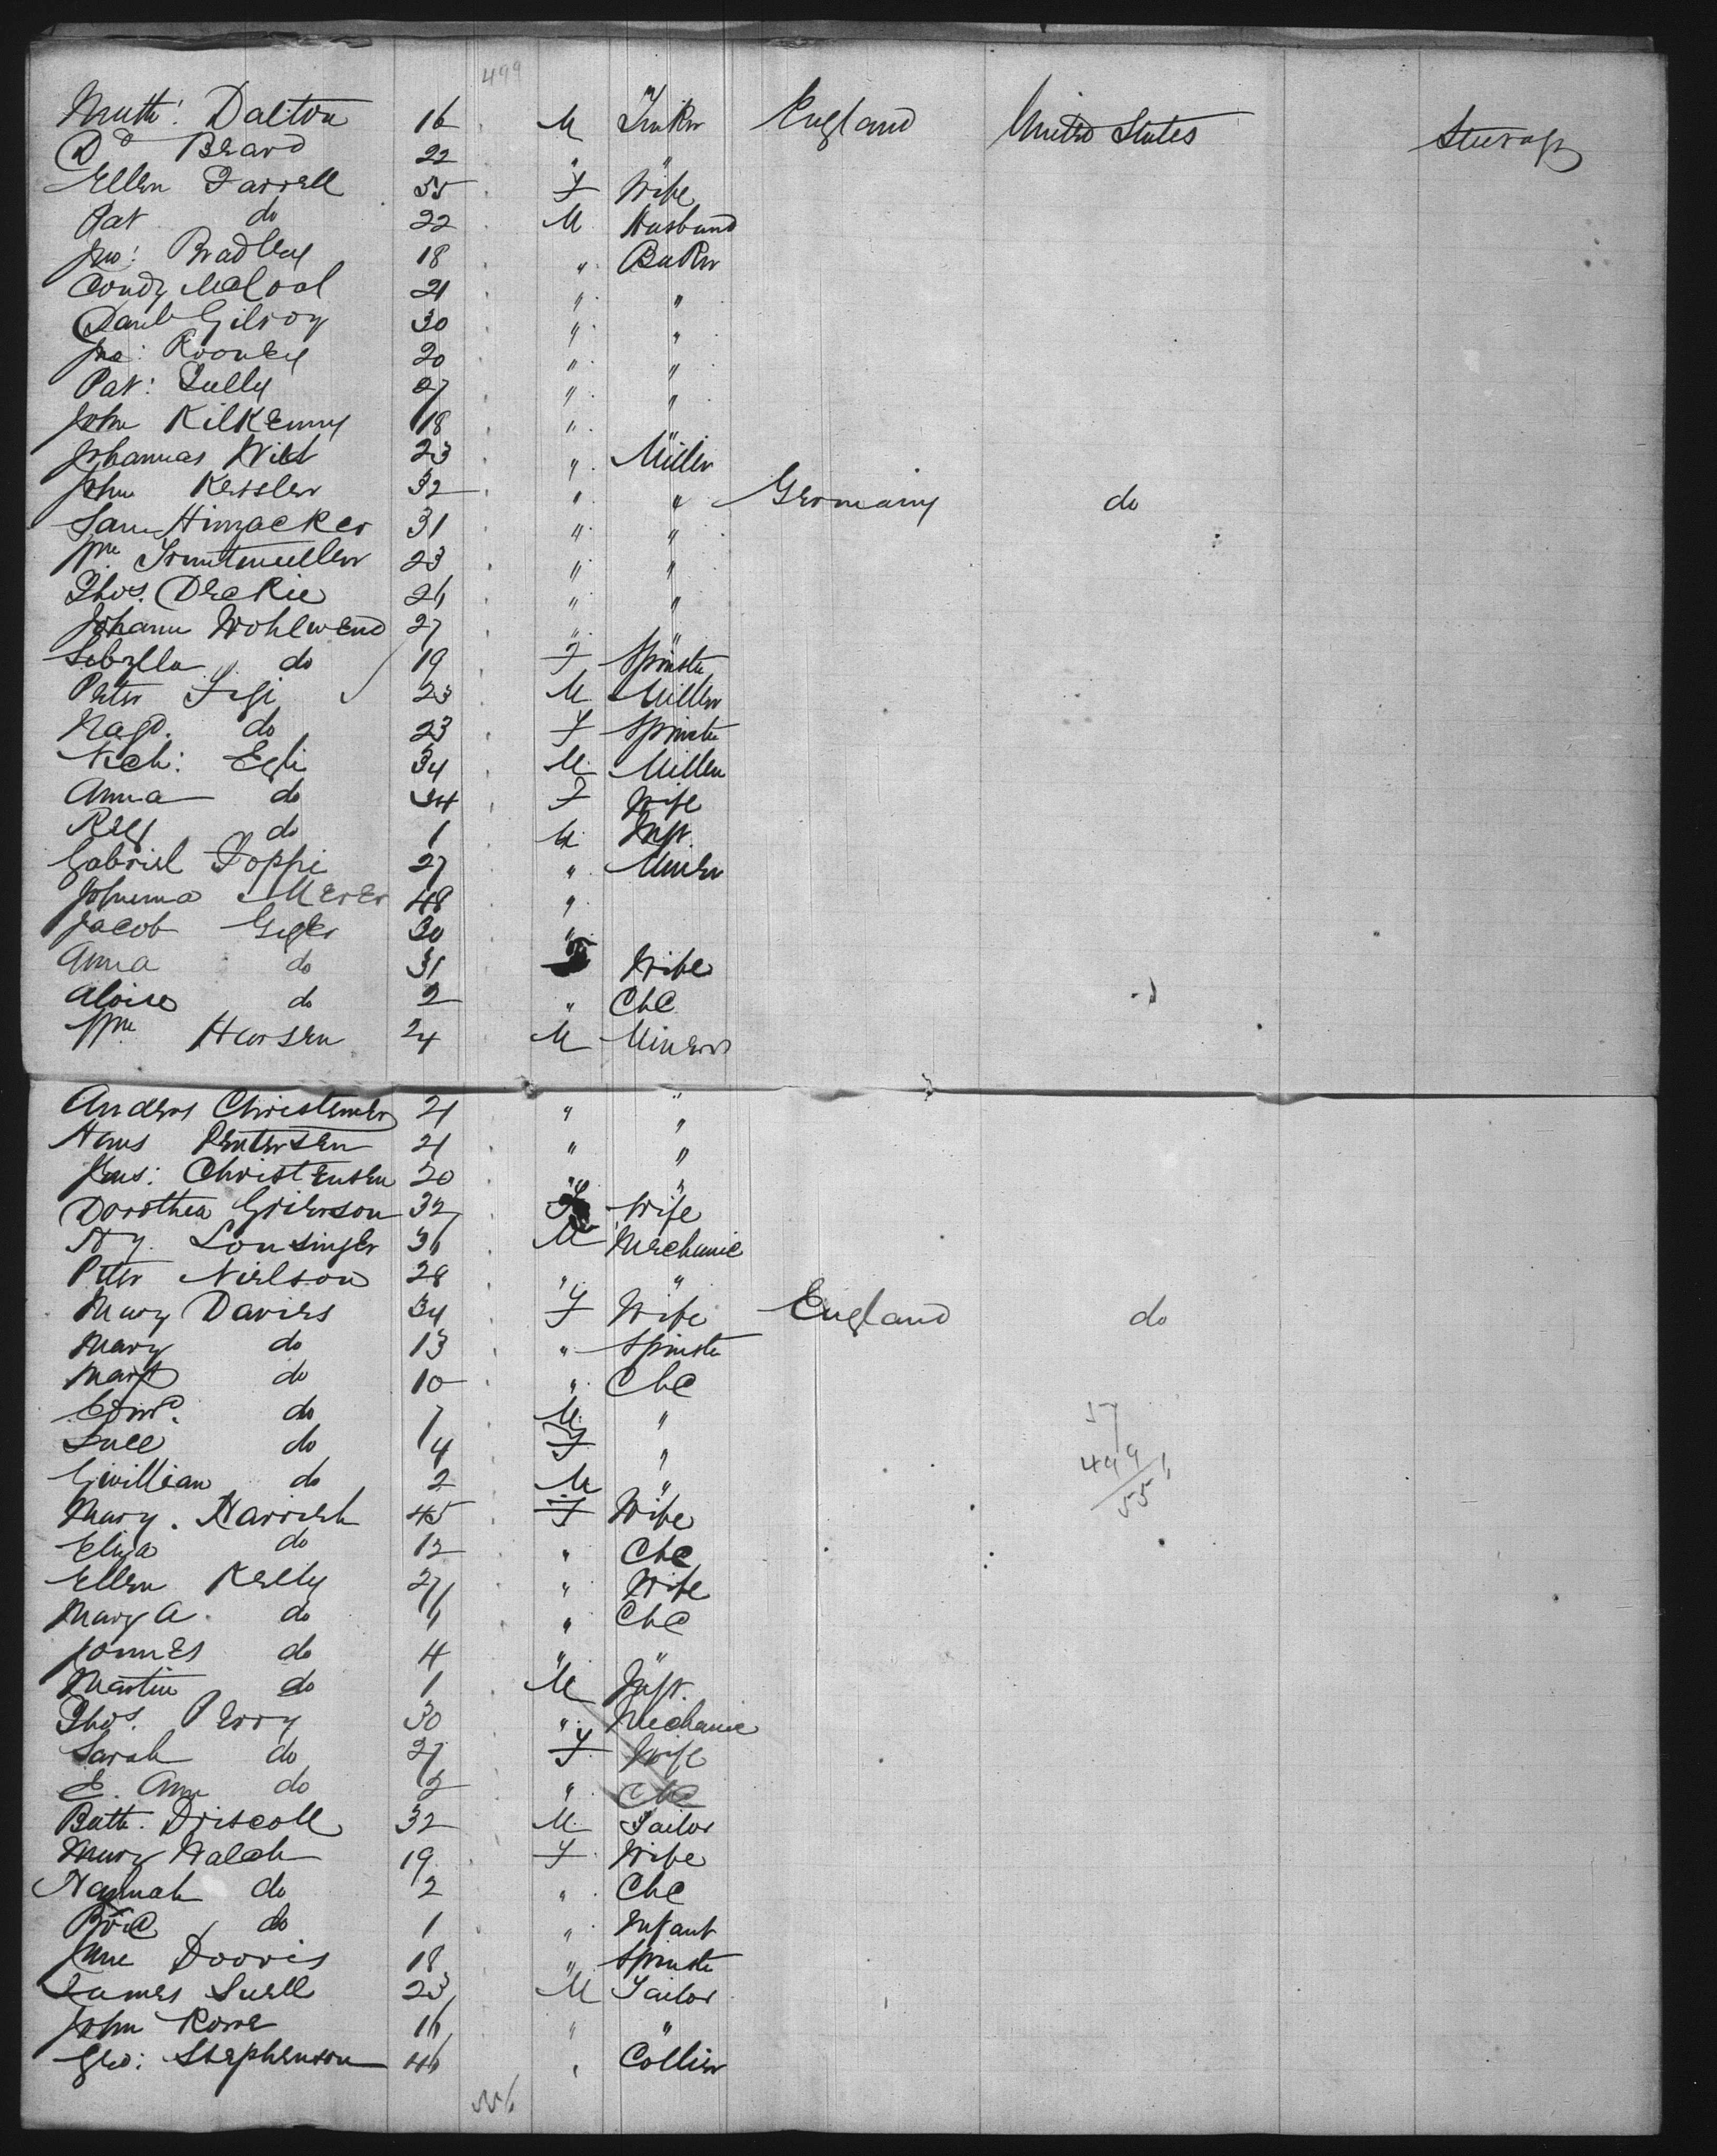 499
Matth: Dalton 16 M Tinker England United States Steerage
Dd Beard 22 " "
Ellen Farrell 55 F Wife
Pat do 22 M Husband
Jno: Bradley 18 " Baker
Condy McCool 21 " "
Danl Gilroy 30 " "
Jno: Rooney 20 " "
Pat: Tully 27 " "
John Kilkenny 18 " "
Johannas Wild 23 " Miller
John Kessler 32 " " Germany do
Sam Himacker 31 " "
Wm 23 " "
Thos. Deckie 26 " "
Johann Wohlwend 27 " "
Sibylla do 19 F Spinster
Peter Figi 23 M Miller
Magd. do 23 F Spinster
Nich: Egli 34 M Miller
Anna do 34 F Wife
do 1 M Inft.
Gabriel Poppi 27 " Miner
48 "
Jacob Giger 30 "
Anna do 31 F Wife
Aloise do 2 " Chd
Wm Hansen 24 M Miner
Anders Christensen 21 " "
Hans Pentersen 21 " "
Jens: Christensen 20 " "
Dorothea Grierson 32 F Wife
Hy. Lonsinger 36 M Mechanic
Peter Nielson 28 " "
Mary Davies 34 F Wife England do
Mary do 13 " Spinster
Margt do 10 " Chd
Edwd. do 7 M "
do 4 F "
Gwilliam do 2 M "
57
499
556
Mary. Harrish 45 F Wife
Eliza do 12 " Chd
Ellen Kelly 27 " Wife
Mary A. do 6 " Chd
James do 4 " "
Martin do 1 M Inft.
Thos. Perry 30 " Mechanic
Sarah do 27 F Wife
E. Ann do 2 " Chd
Batt. Driscoll 32 M Tailor
Mary Walsh 19 F Wife
Hannah do 2 " Chd
do 1 " Infant
Jane Dooris 18 " Spinster
James Snell 23 M Tailor
John Rowe 16 " "
Geo: Stephenson 46 " Collier
556